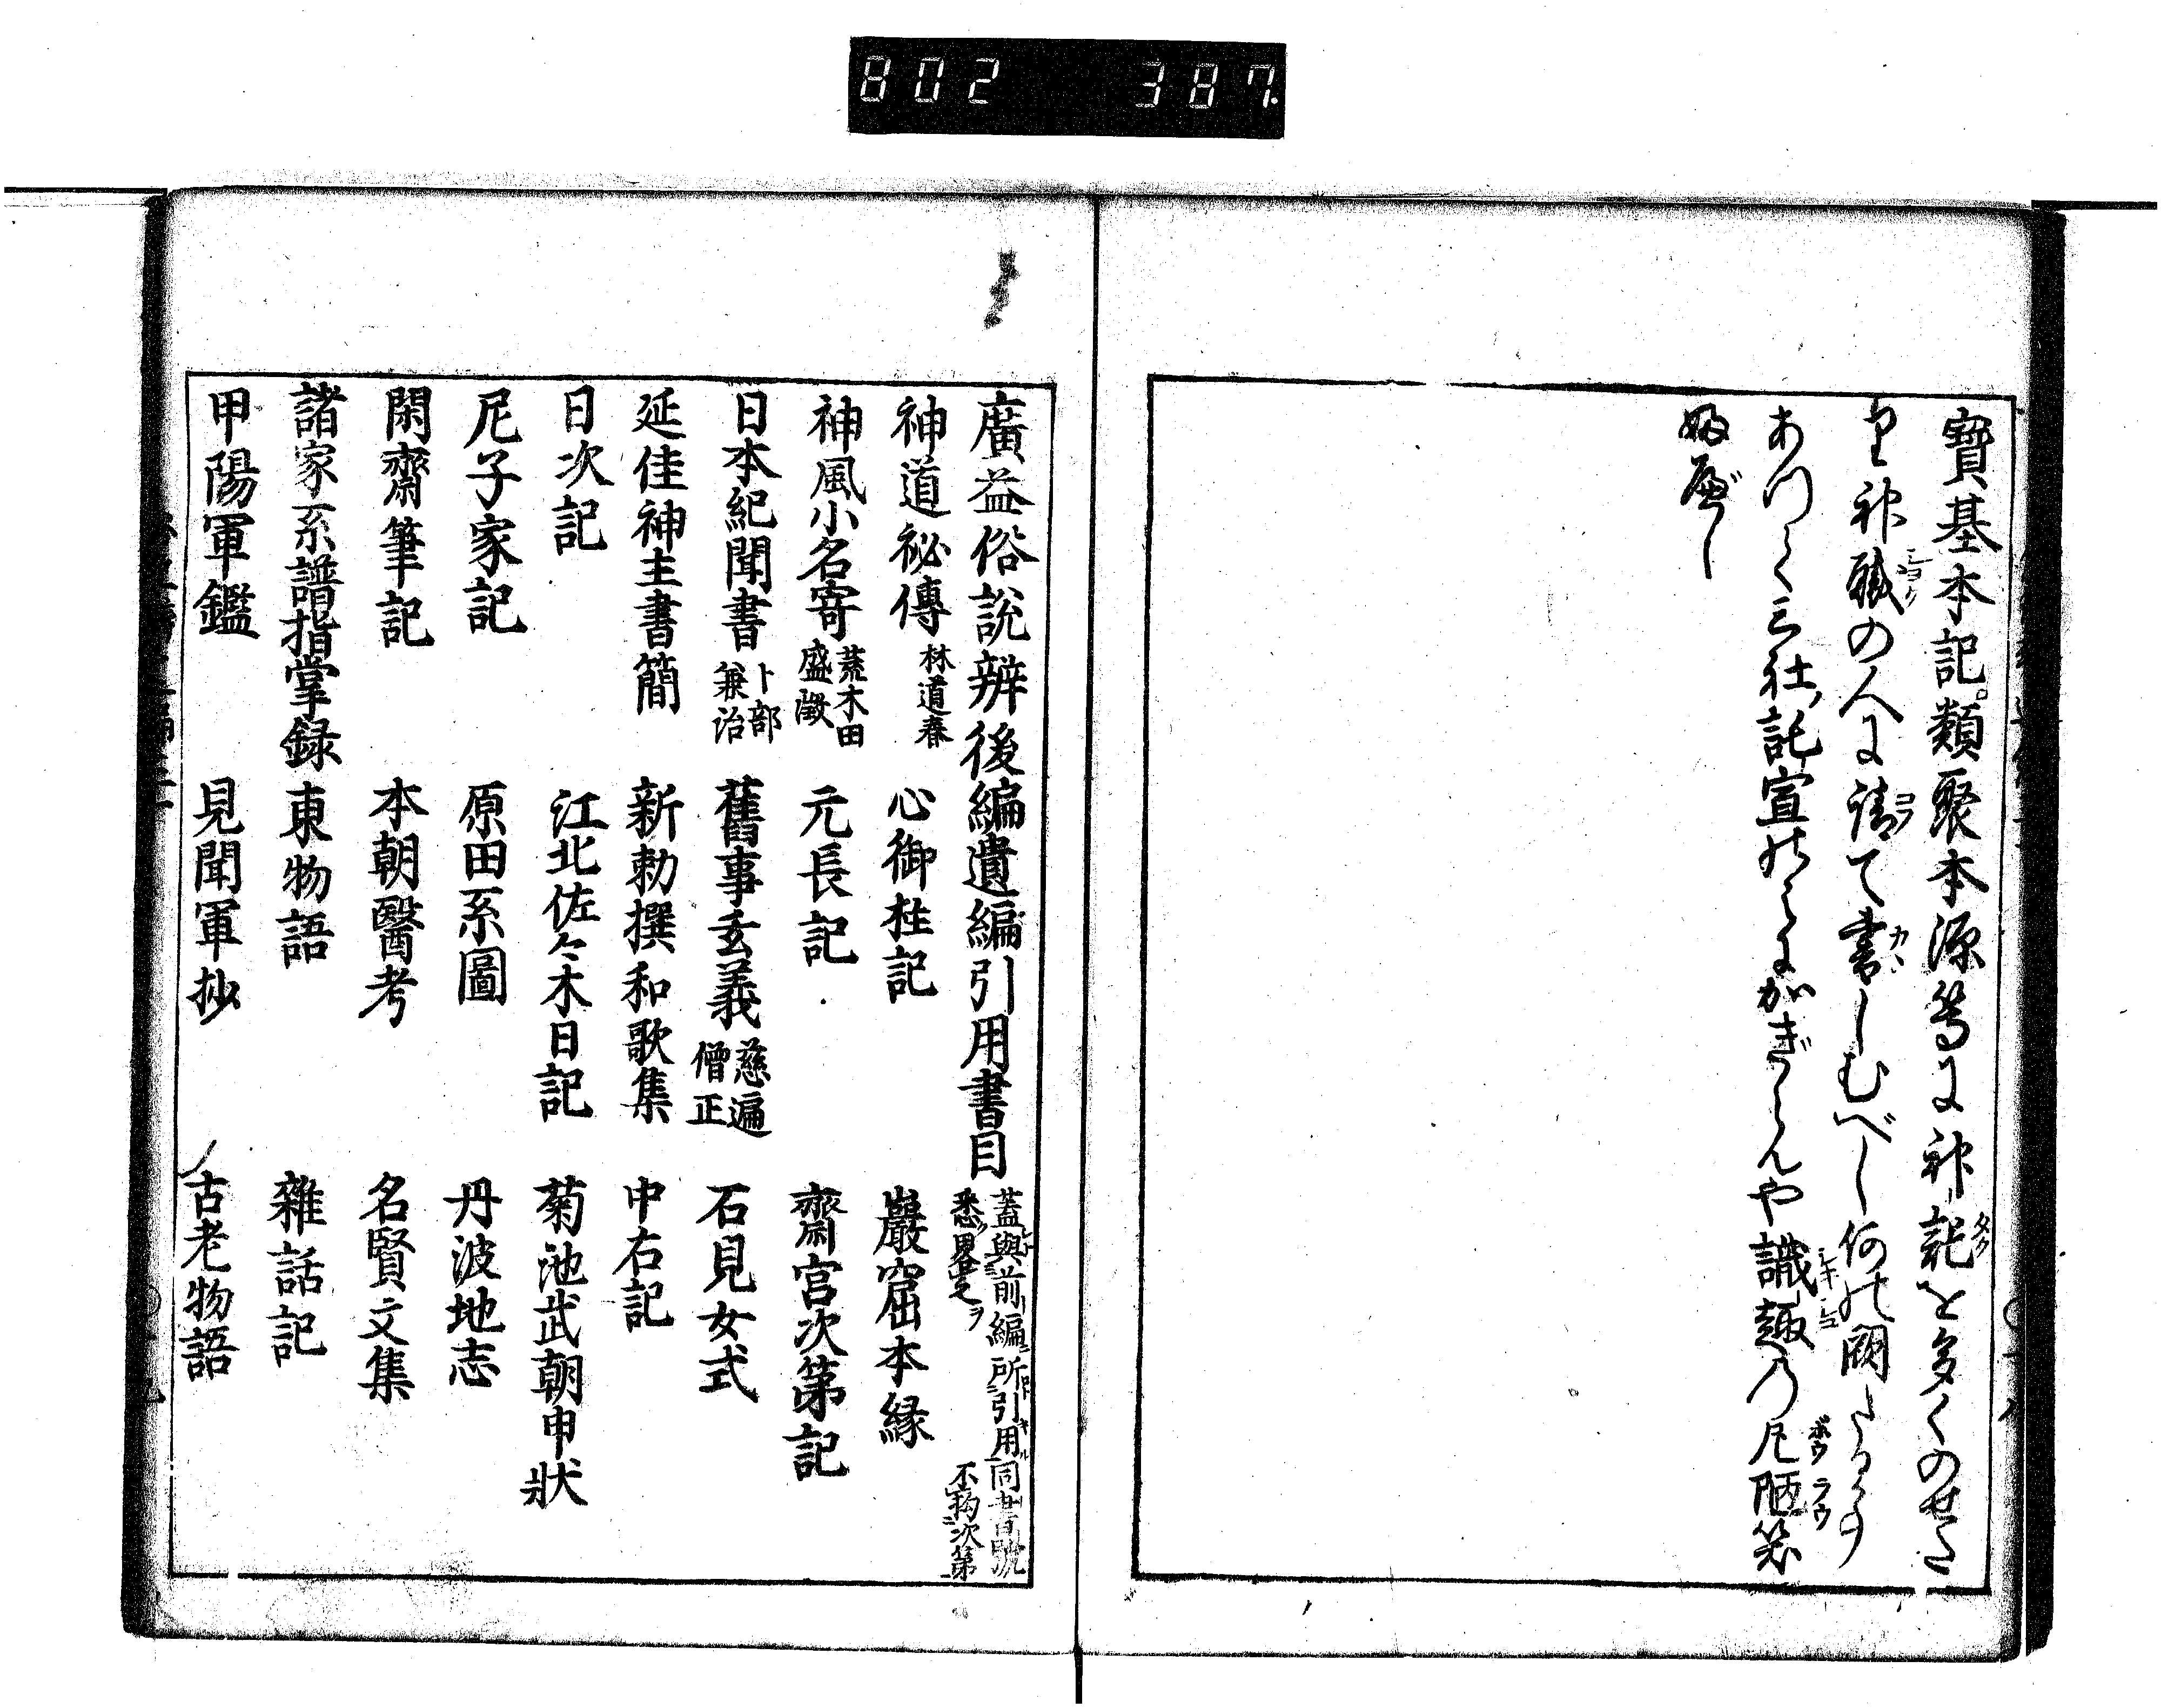 802 387.
寶基本記。類聚本源等に神託を多くのせた
り神職の人に請て書しむべし何の闕たる事
ありてか三社託宣のみにかぎらんや識趣の凡陋笑
ふべし
廣益俗說辨後編遺編引用書目 蓋與前編所引用同書號
悉畧之 不拘次第
神道祕傳 林道春 心御柱記 巖窟本縁
神風小名寄 荒木田盛澂 元長記 齋宮次第記
日本紀聞書 卜部兼治 舊事玄義 慈遍僧正 石見女式
延佳神主書簡 新勅撰和歌集 中右記
日次記 江北佐々木日記 菊池武朝申狀
尼子家記 原田系圖 丹波地志
閑齋筆記 本朝醫考 名賢文集
諸家系譜指掌録 東物語 雜話記
甲陽軍鑑 見聞軍抄 古老物語